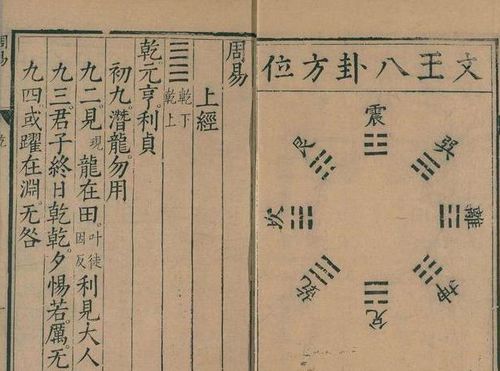 文王八卦方位
震
巽
離
坤
兌
乾
坎
艮
周易
上經
乾下
乾上
乾元亨利貞
初九潛龍勿用
九二見現龍在田叶徒因反利見大人
九三君子終日乾乾夕惕若厲无
九四或躍在淵无咎
周易
乾